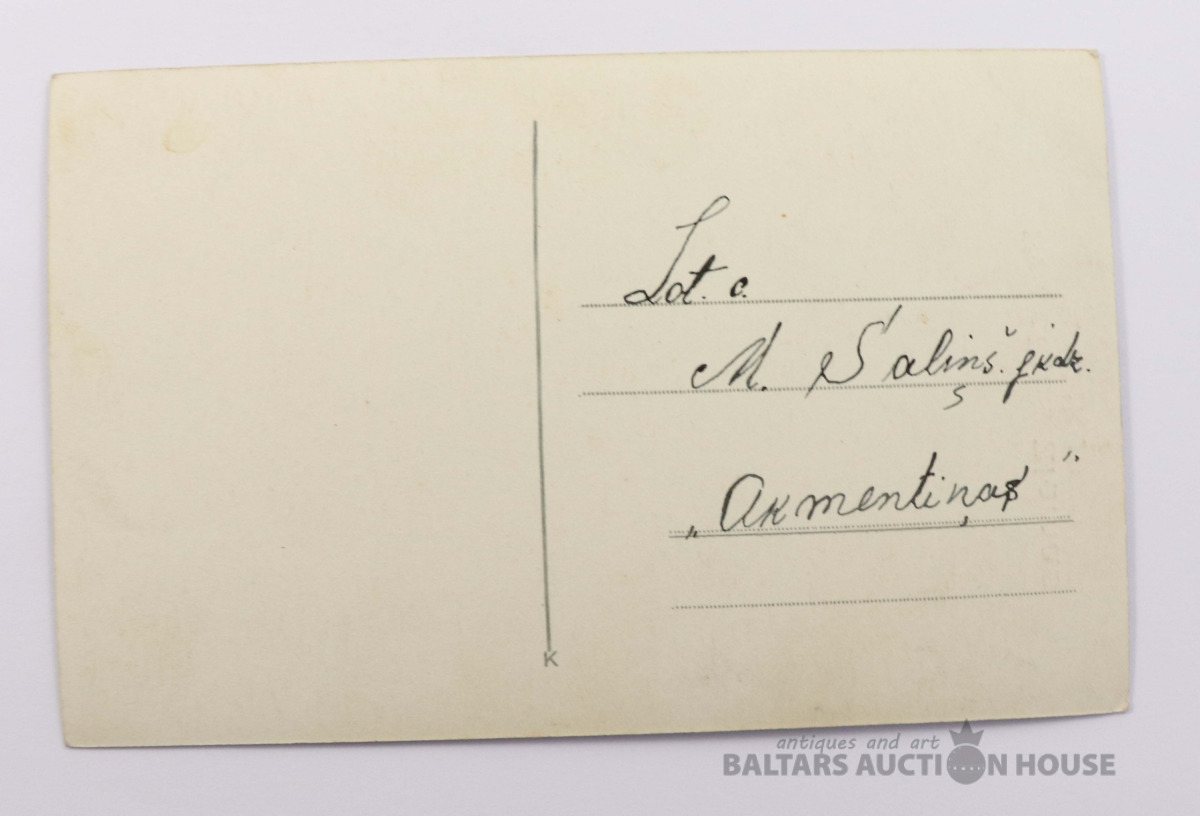 Lot. c.
M. Saliņš. gkdz.
„Akmentiņas”
K
antiques and art
BALTARS AUCTION HOUSE